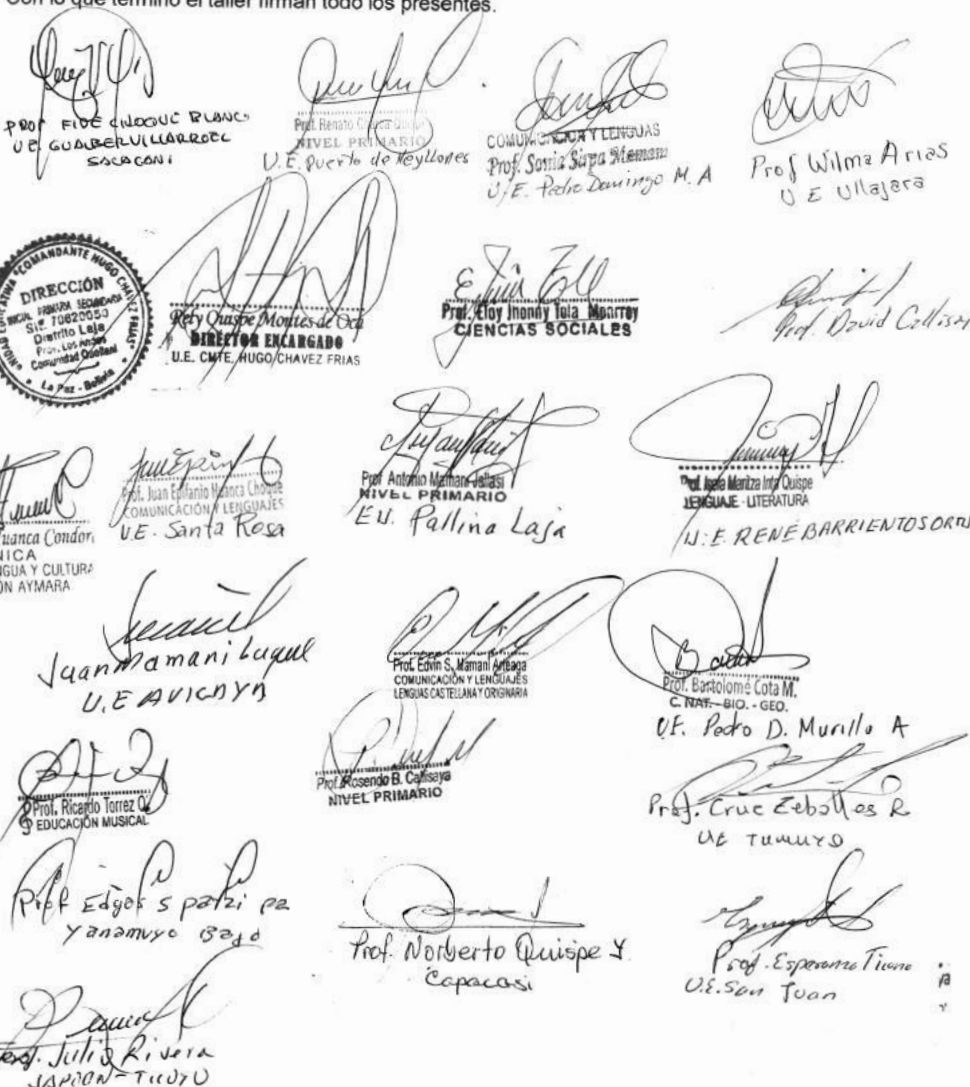 Con lo que termino el taller firman todo los presentes.
PROF FIDE CHOQUE BLANCO
U E GUALBERVILLARROEL
SACACANI
Prof. Renato
NIVEL PRIMARIO
U.E. Puerto de Meyllones
COMUNICACION Y LENGUAS
Prof. Sonia Sirpa Mamani
U/E. Pedro Domingo M. A
Prof Wilma Arias
U E Ullajara
UNIDAD EDUCATIVA "COMANDANTE HUGO CHAVEZ FRIAS"
DIRECCIÓN
INICIAL PRIMARIA SECUNDARIA
SIE. 70820050
Distrito Laja
Prov. Los Andes
Comunidad Quellani
La Paz - Bolivia
Rety Quispe Montes de Oca
DIRECTOR ENCARGADO
U.E. CMTE. HUGO CHAVEZ FRIAS
Prof. Eloy Jhonny Tola Monrroy
CIENCIAS SOCIALES
Prof. David Callisay
uanca Condori
NICA
NGUA Y CULTURA
ÓN AYMARA
Prof. Juan Epifanio Huanca Choque
COMUNICACIÓN Y LENGUAJES
U.E. Santa Rosa
Prof. Antonio Mamani Jallasi
NIVEL PRIMARIO
E.U. Pallina Laja
Prof. Maritza Inta Quispe
LENGUAJE - LITERATURA
U.E. RENÉ BARRIENTOS ORTU
Juan Mamani Luque
U.E AVICAYA
Prof. Edvin S. Mamani Arteaga
COMUNICACIÓN Y LENGUAJES
LENGUAS CASTELLANA Y ORIGINARIA
Prof. Bartolomé Cota M.
C. NAT. - BIO. - GEO.
U.E. Pedro D. Murillo A
Prof. Ricardo Torrez Q.
EDUCACIÓN MUSICAL
Prof. Rosendo B. Callisaya
NIVEL PRIMARIO
Prof. Cruc Zeballos R
UE TUMUYO
Prof Edgar S patzi pa
Yanamuyo Bajo
Prof. Norberto Quispe Y
Capacasi
Prof. Esperanza Ticona
U.E. San Juan
Prof. Julio Rivera
JAPON-TUUYO